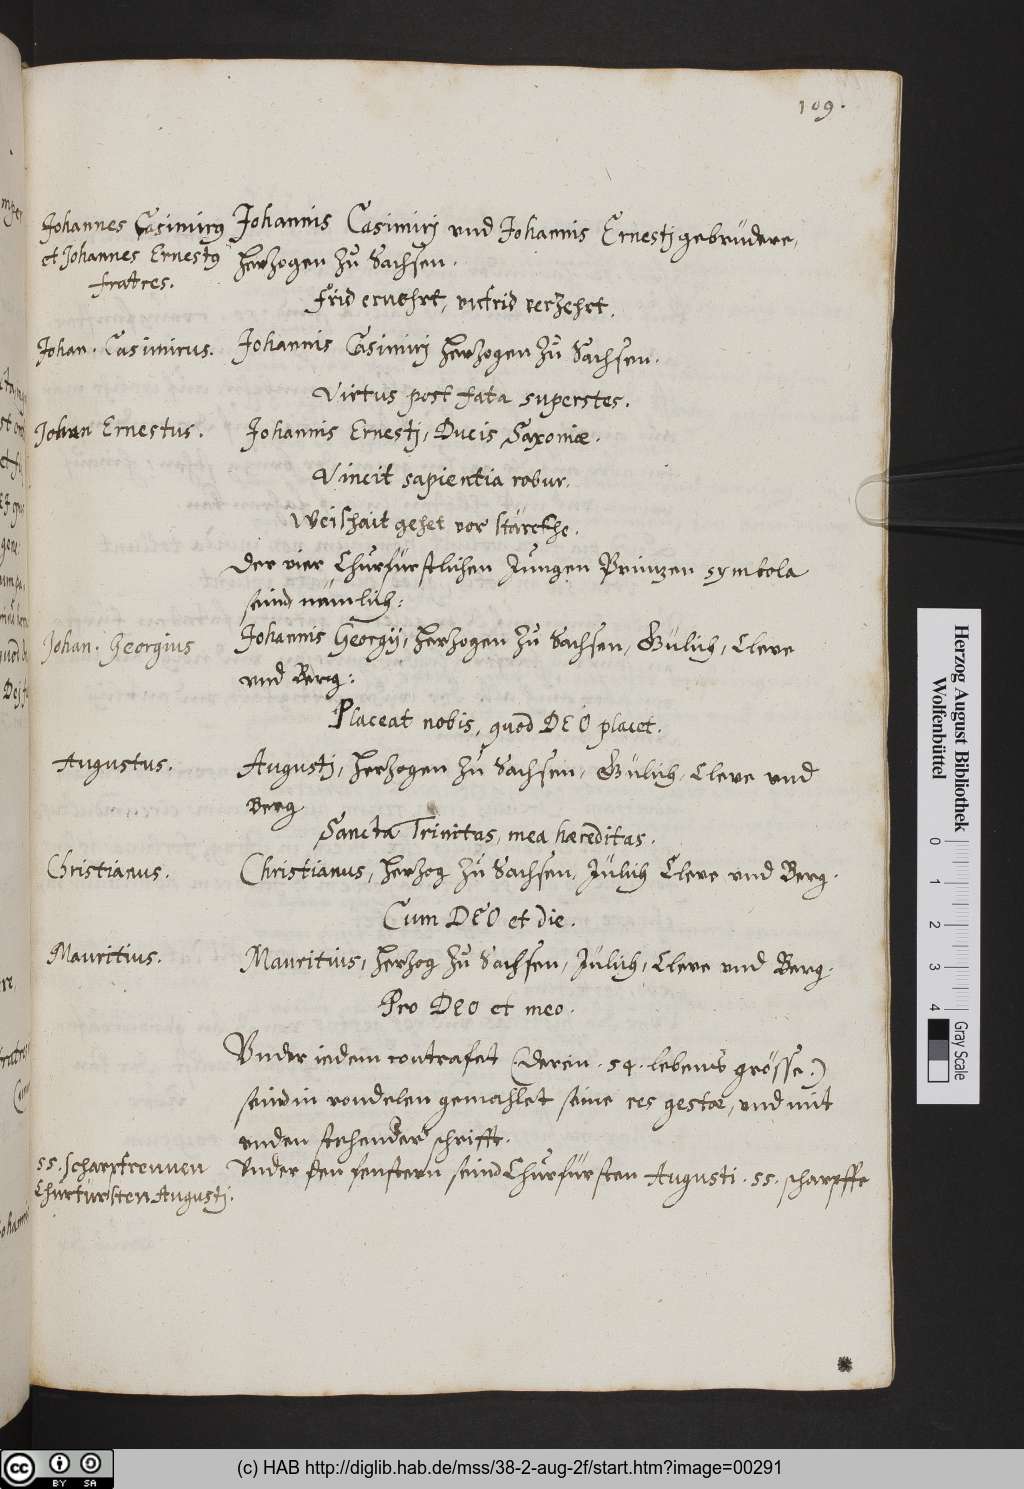 109.
Johannes Casimirus
et Johannes Ernestus
fratres.
Johannis Casimirj vnd Johannis Ernestj gebrüdere,
Herzogen zů Sachsen.
Frid ernehrt, vnfrid verzehrt.
Johan. Casimirus.
Johannis Casimirj Herzogen zů Sachsen.
Virtus post fata superstes.
Johan Ernestus.
Johannis Ernestj, Ducis Saxoniæ.
Vincit sapientia robur.
Weishait gehet vor stärckhe.
Der vier Churfürstlichen Jungen Prinzen symbola
seind nämlich:
Johan. Georgius
Johannis Georgij, Herzogen zů Sachsen, Gülich, Cleve
vnd Berg:
Placeat nobis, quod DEO placet.
Augustus.
Augustj, Herzogen zů Sachsen, Gülich, Cleve vnd
Berg
Sancta Trinitas, mea hæreditas.
Christianus.
Christianus, Herzog zů Sachsen, Jülich Cleve vnd Berg.
Cum DEO et die.
Mauritius.
Mauritius, Herzog zů Sachsen, Jülich, Cleve vnd Berg.
Pro DEO et meo.
Vnder iedem contrafet (deren .54. lebens grösse.)
seind in rondelen gemahlet seine res gestæ, vnd mit
vnden stehender schrifft.
55. scharpfrennen
Churfürsten Augustj.
Vnder den fenstern seind Churfürsten Augusti .55. scharpffe
Herzog August Bibliothek
Wolfenbüttel
0 1 2 3 4
Gray Scale
BY SA
(c) HAB http://diglib.hab.de/mss/38-2-aug-2f/start.htm?image=00291